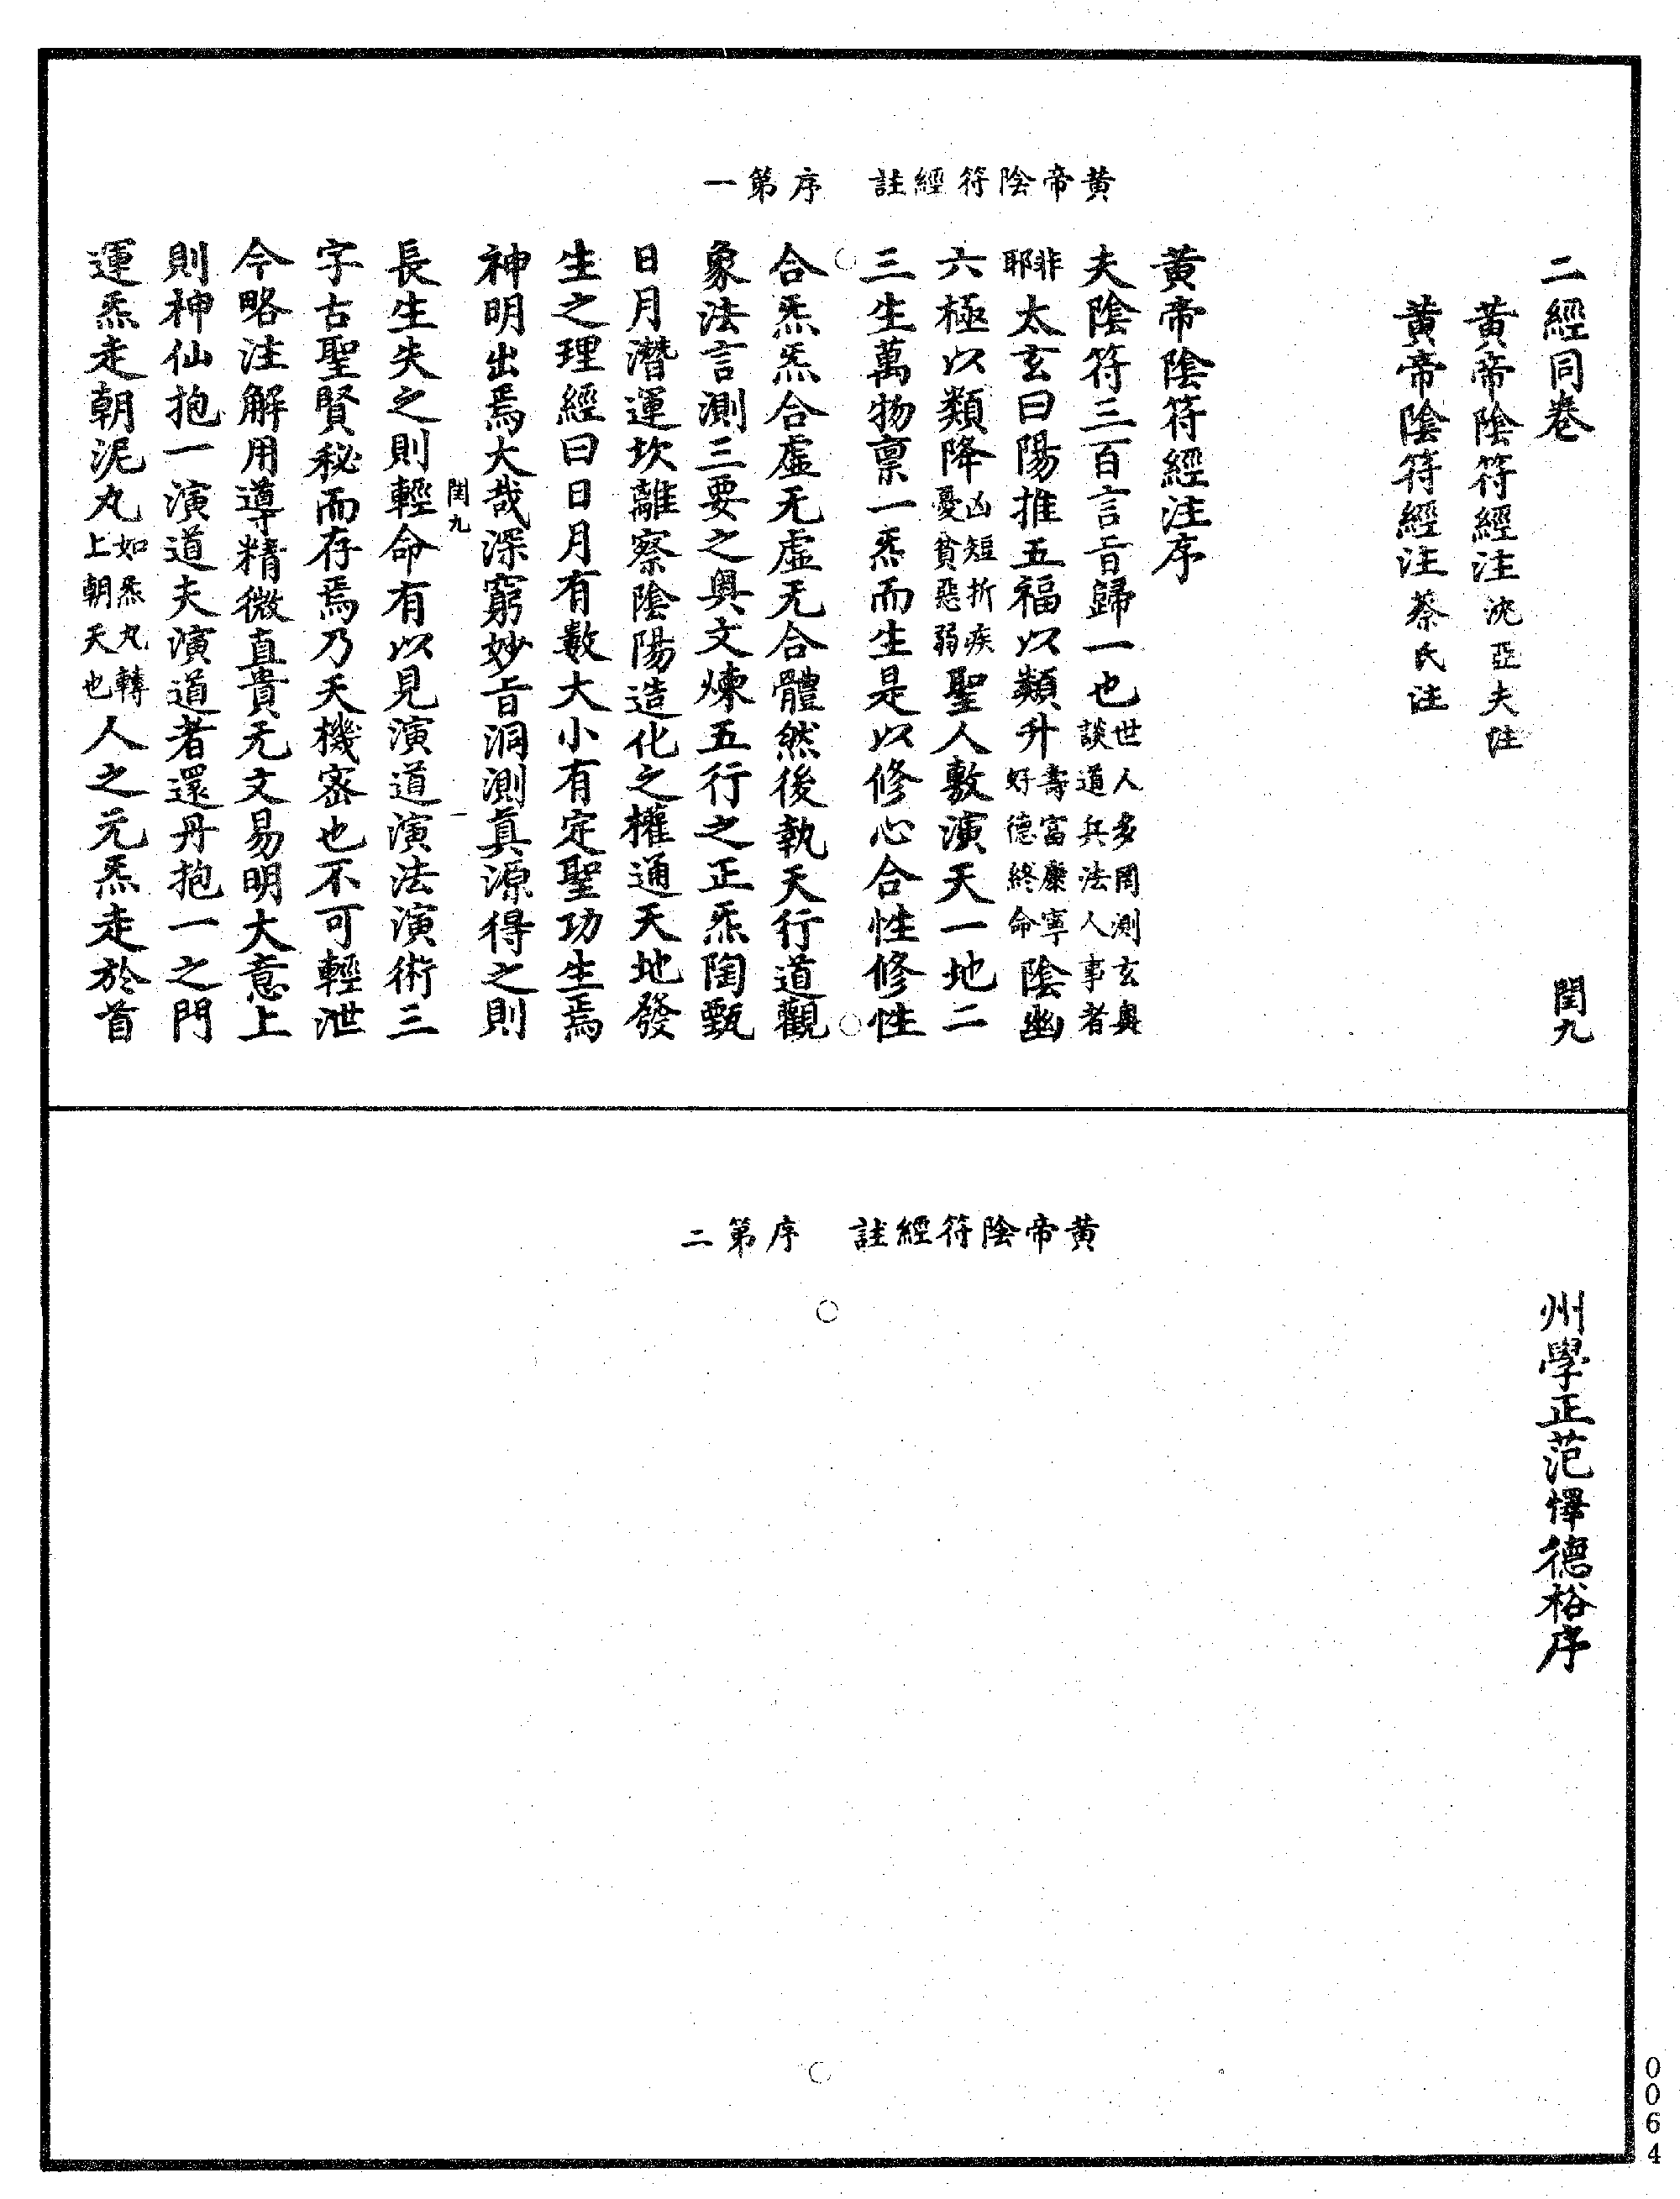 黃帝陰符經註　序第一
二經同卷　閏九
黃帝陰符經注沈亞夫注
黃帝陰符經注蔡氏注
黃帝陰符經注序
夫陰符三百言旨歸一也世人多罔測玄奥談道兵法人事者
非耶太玄曰陽推五福以類升壽富康寧好德終命陰幽
六極以類降凶短折疾憂貧惡弱聖人敷演天一地二
三生萬物稟一炁而生是以修心合性修性
合炁炁合虛无虛无合體然後執天行道觀
象法言測三要之輿文煉五行之正炁陶甄
日月潛運坎離察陰陽造化之權通天地發
生之理經曰日月有數大小有定聖功生焉
神明出焉大哉深窮妙旨洞測真源得之則
閏九　一
長生失之則輕命有以見演道演法演術三
字古聖賢秘而存焉乃天機密也不可輕泄
今略注解用遵精微直貴无文易明大意上
則神仙抱一演道夫演道者還丹抱一之門
運炁走朝泥丸如炁丸轉上朝天也人之元炁走於首
黃帝陰符經註　序第二
州學正范懌德裕序
0064